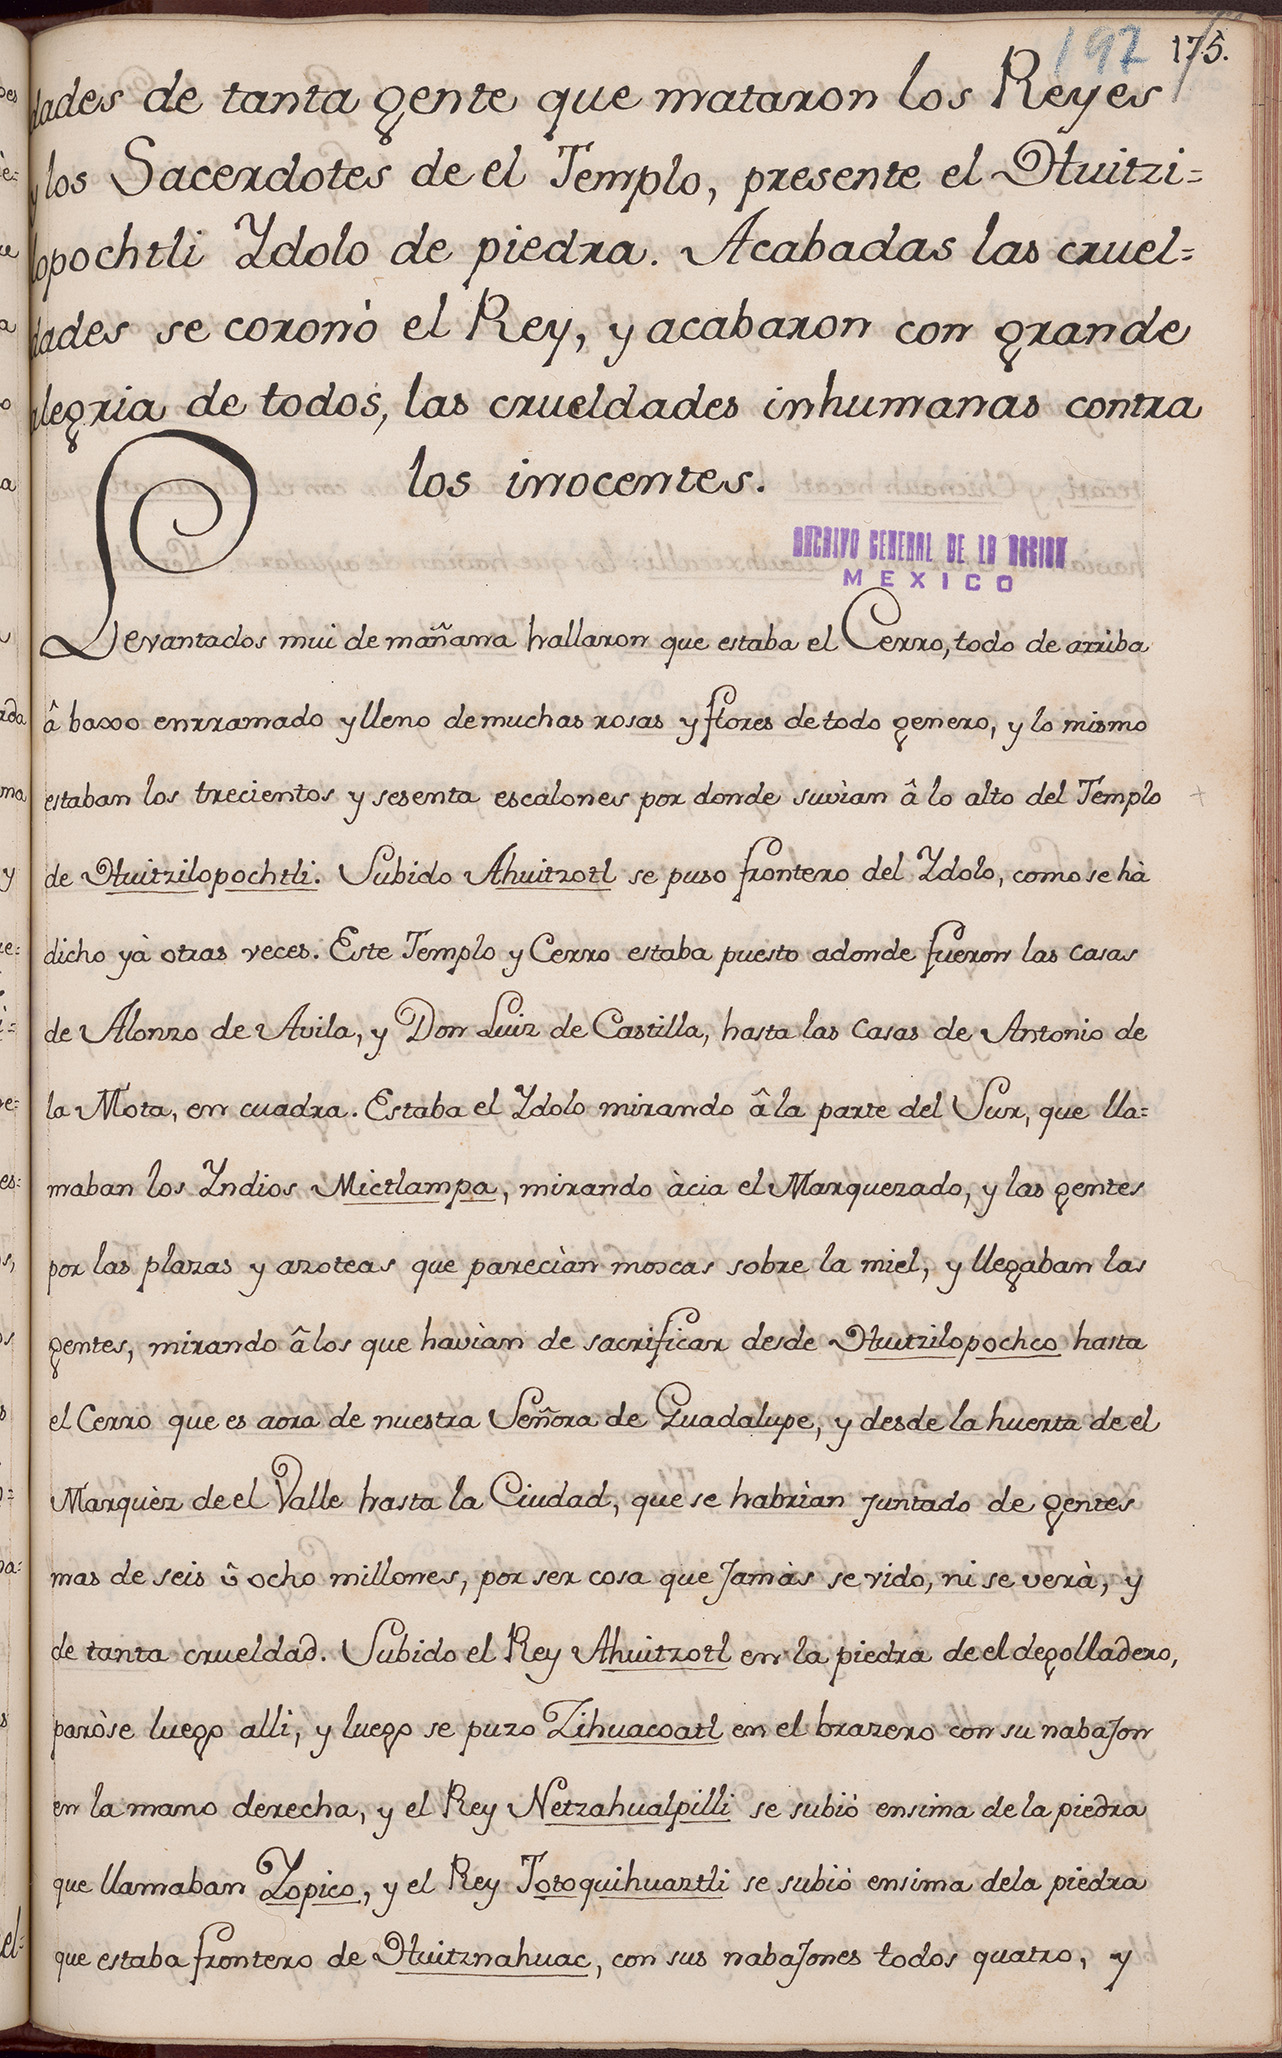 192 175.
dades de tanta gente que mataron los Reyes
y los Sacerdotes de el Templo, presente el Huitzi=
lopochtli Ydolo de piedra. Acabadas las cruel=
dades se coronò el Rey, y acabaron con grande
alegria de todos, las crueldades inhumanas contra
los innocentes.
ARCHIVO GENERAL DE LA NACION
MEXICO
Levantados mui de mañana hallaron que estaba el Cerro, todo de arriba
â baxo enrramado y lleno de muchas rosas y flores de todo genero, y lo mismo
estaban los trecientos y sesenta escalones por donde suvian â lo alto del Templo
de Huitzilopochtli. Subido Ahuitzotl se puso frontero del Ydolo, como se hà
dicho yà otras veces. Este Templo y Cerro estaba puesto adonde fueron las casas
de Alonzo de Avila, y Don Luiz de Castilla, hasta las Casas de Antonio de
la Mota, en cuadra. Estaba el Ydolo mirando â la parte del Sur, que lla=
maban los Yndios Mictlampa, mirando àcia el Marquezado, y las gentes
por las plazas y azoteas que parecìan moscas sobre la miel, y llegaban las
gentes, mirando â los que havìan de sacrificar desde Huitzilopochco hasta
el Cerro que es aora de nuestra Señora de Guadalupe, y desde la huerta de el
Marquèz de el Valle hasta la Ciudad, que se habrìan juntado de gentes
mas de seis û ocho millones, por ser cosa que jamàs se vido, ni se verà, y
de tanta crueldad. Subido el Rey Ahuitzotl en la piedra de el degolladero,
paròse luego alli, y luego se puzo Zihuacoatl en el brazero con su nabajon
en la mano derecha, y el Rey Netzahualpilli se subiò ensima de la piedra
que llamaban Yopico, y el Rey Totoquihuaztli se subiò ensima dela piedra
que estaba frontero de Huitznahuac, con sus nabajones todos quatro, y